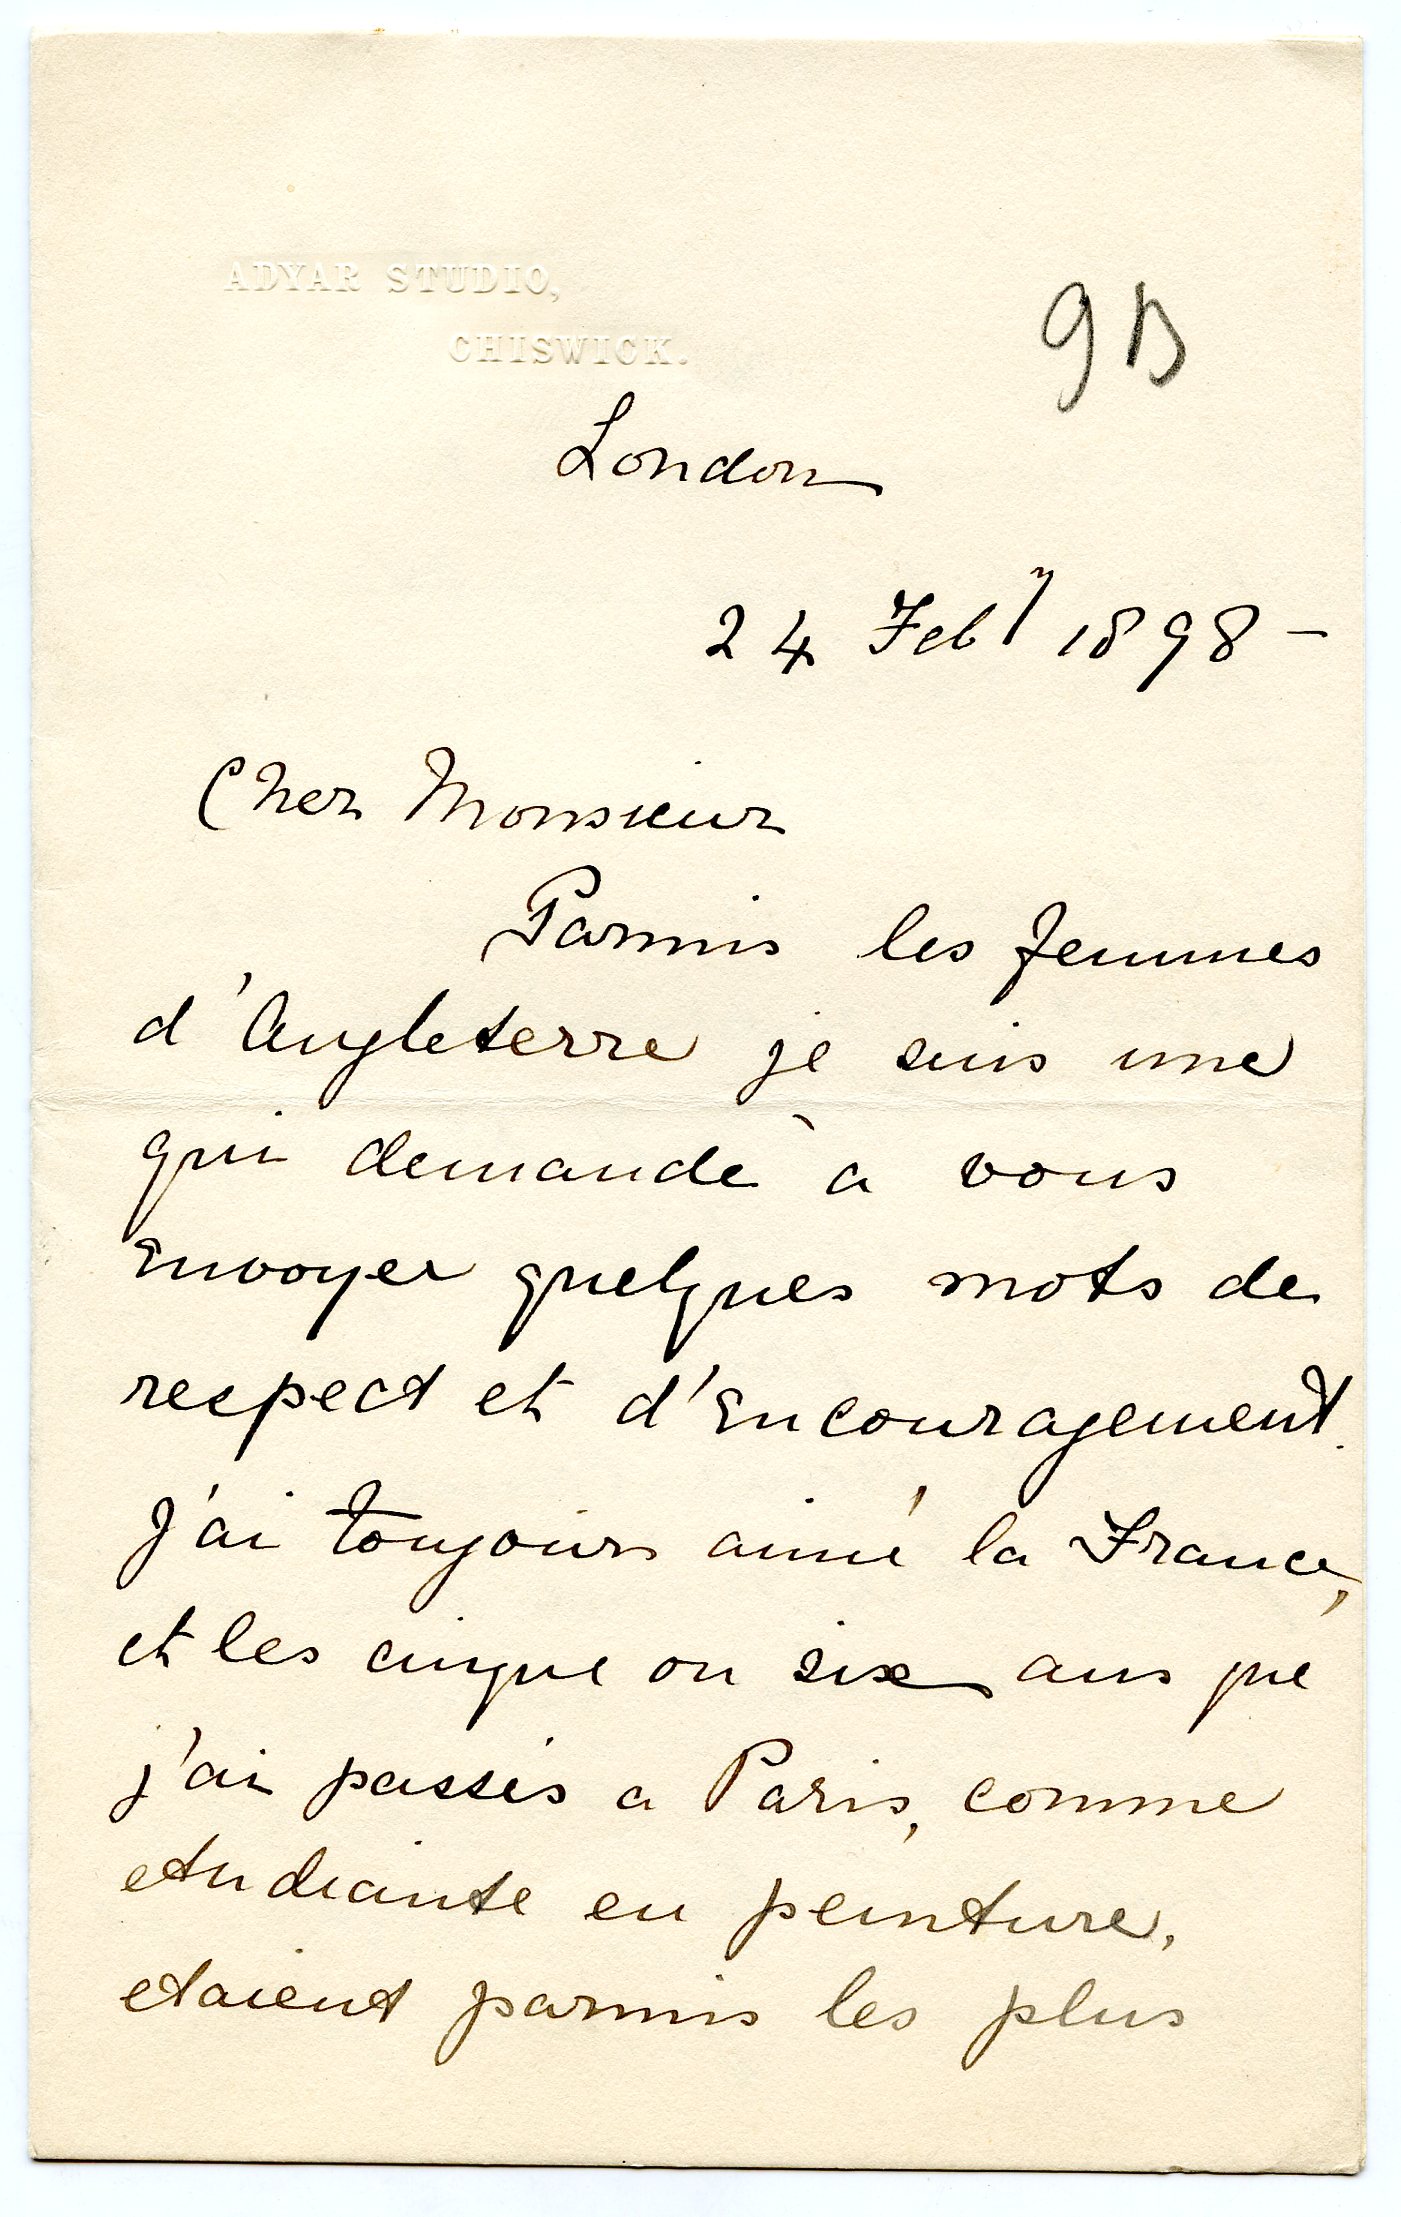 ADYAR STUDIO,
CHISWICK.
9D
London
24 Feby 1898 –
Cher Monsieur
Parmis les femmes
d'Angleterre je suis une
qui demande à vous
envoyer quelques mots de
respect et d'encouragement.
J'ai toujours aimé la France,
et les cinque ou six ans que
j'ai passés a Paris, comme
etudiante en peinture,
etaient parmis les plus